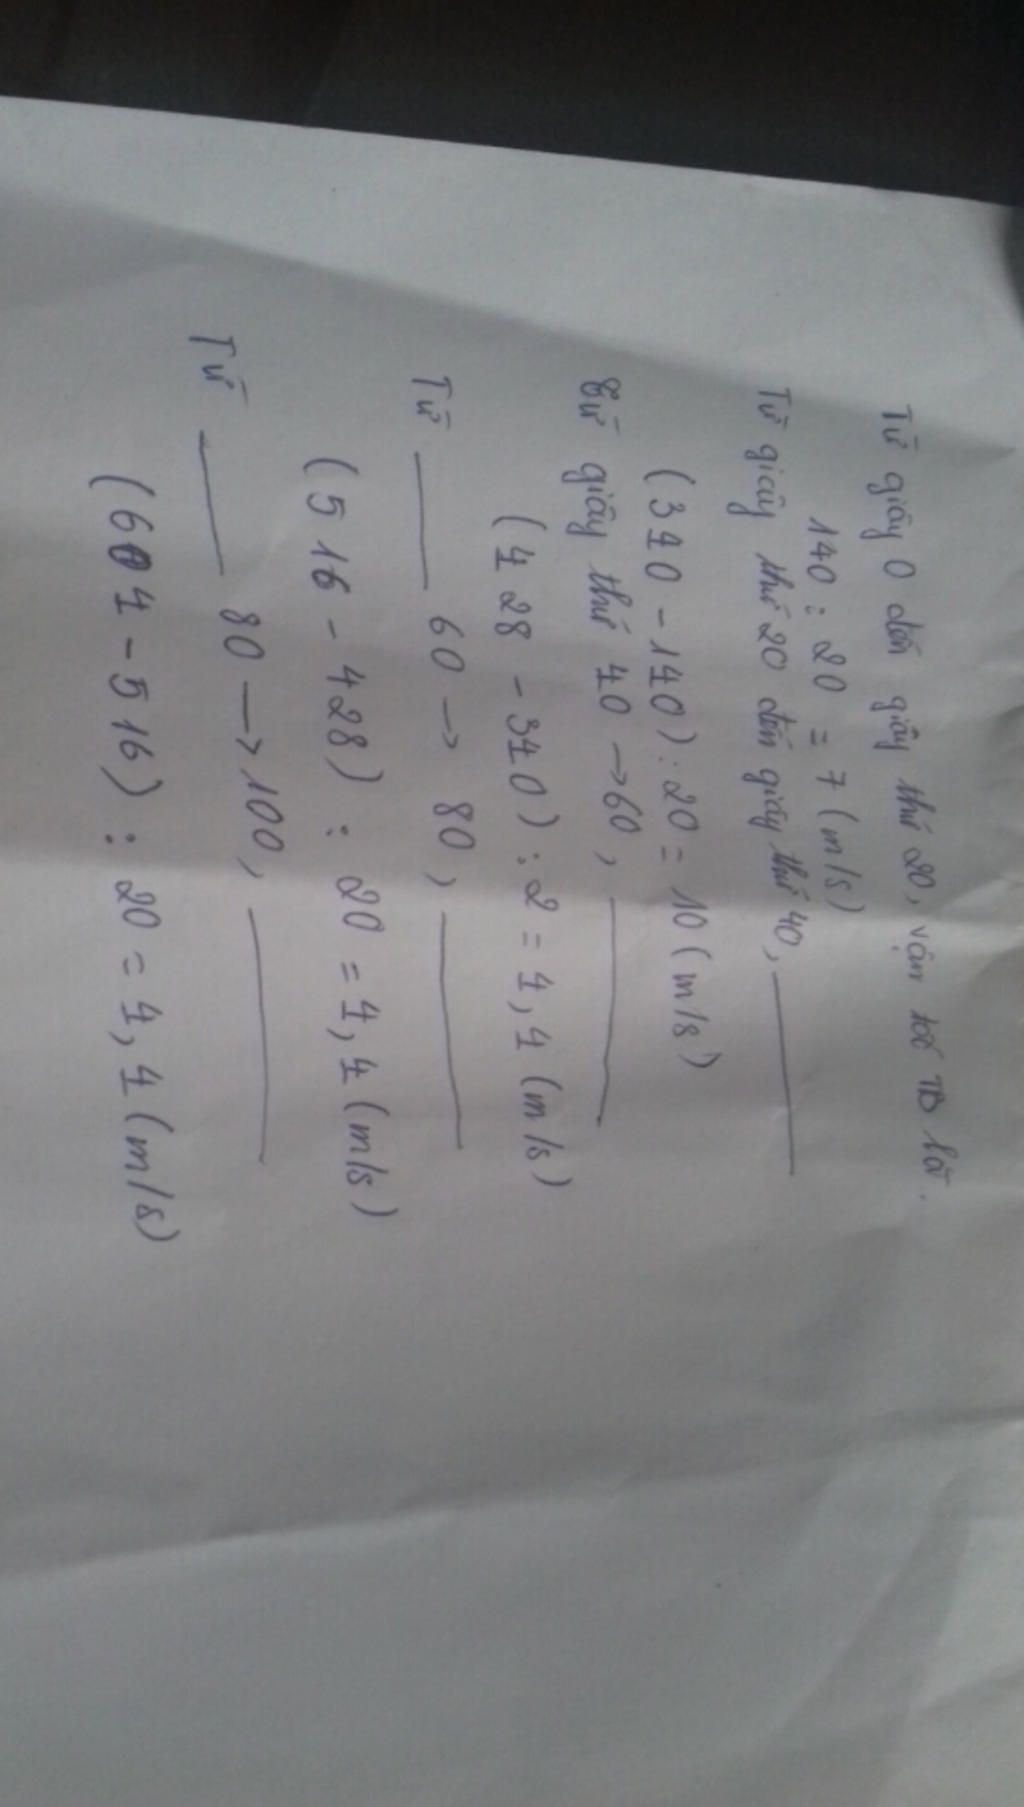 Từ giây 0 đến giây thứ 20, vận tốc TB là.
140 : 20 = 7 (m/s)
Từ giây thứ 20 đến giây thứ 40, ———
(340 - 140) : 20 = 10 (m/s)
Từ giây thứ 40 → 60, ———
(428 - 340) : 2 = 4,4 (m/s)
Từ ——— 60 → 80, ———
(516 - 428) : 20 = 4,4 (m/s)
Từ ——— 80 → 100, ———
(604 - 516) : 20 = 4,4 (m/s)